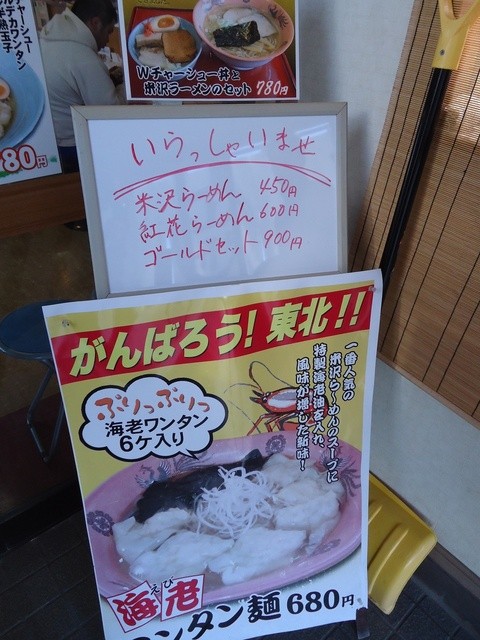 Wチャーシュー丼と
米沢ラーメンのセット 780円
チャーシュー
デカワンタン
半熟玉子
80円
いらっしゃいませ
米沢らーめん 450円
紅花らーめん 600円
ゴールドセット 900円
がんばろう!東北!!
ぷりっぷりっ
海老ワンタン
6ケ入り
一番人気の
米沢らーめんのスープに
特製海老油を入れ、
風味が増した新味!
えび
海老
ワンタン麺 680円